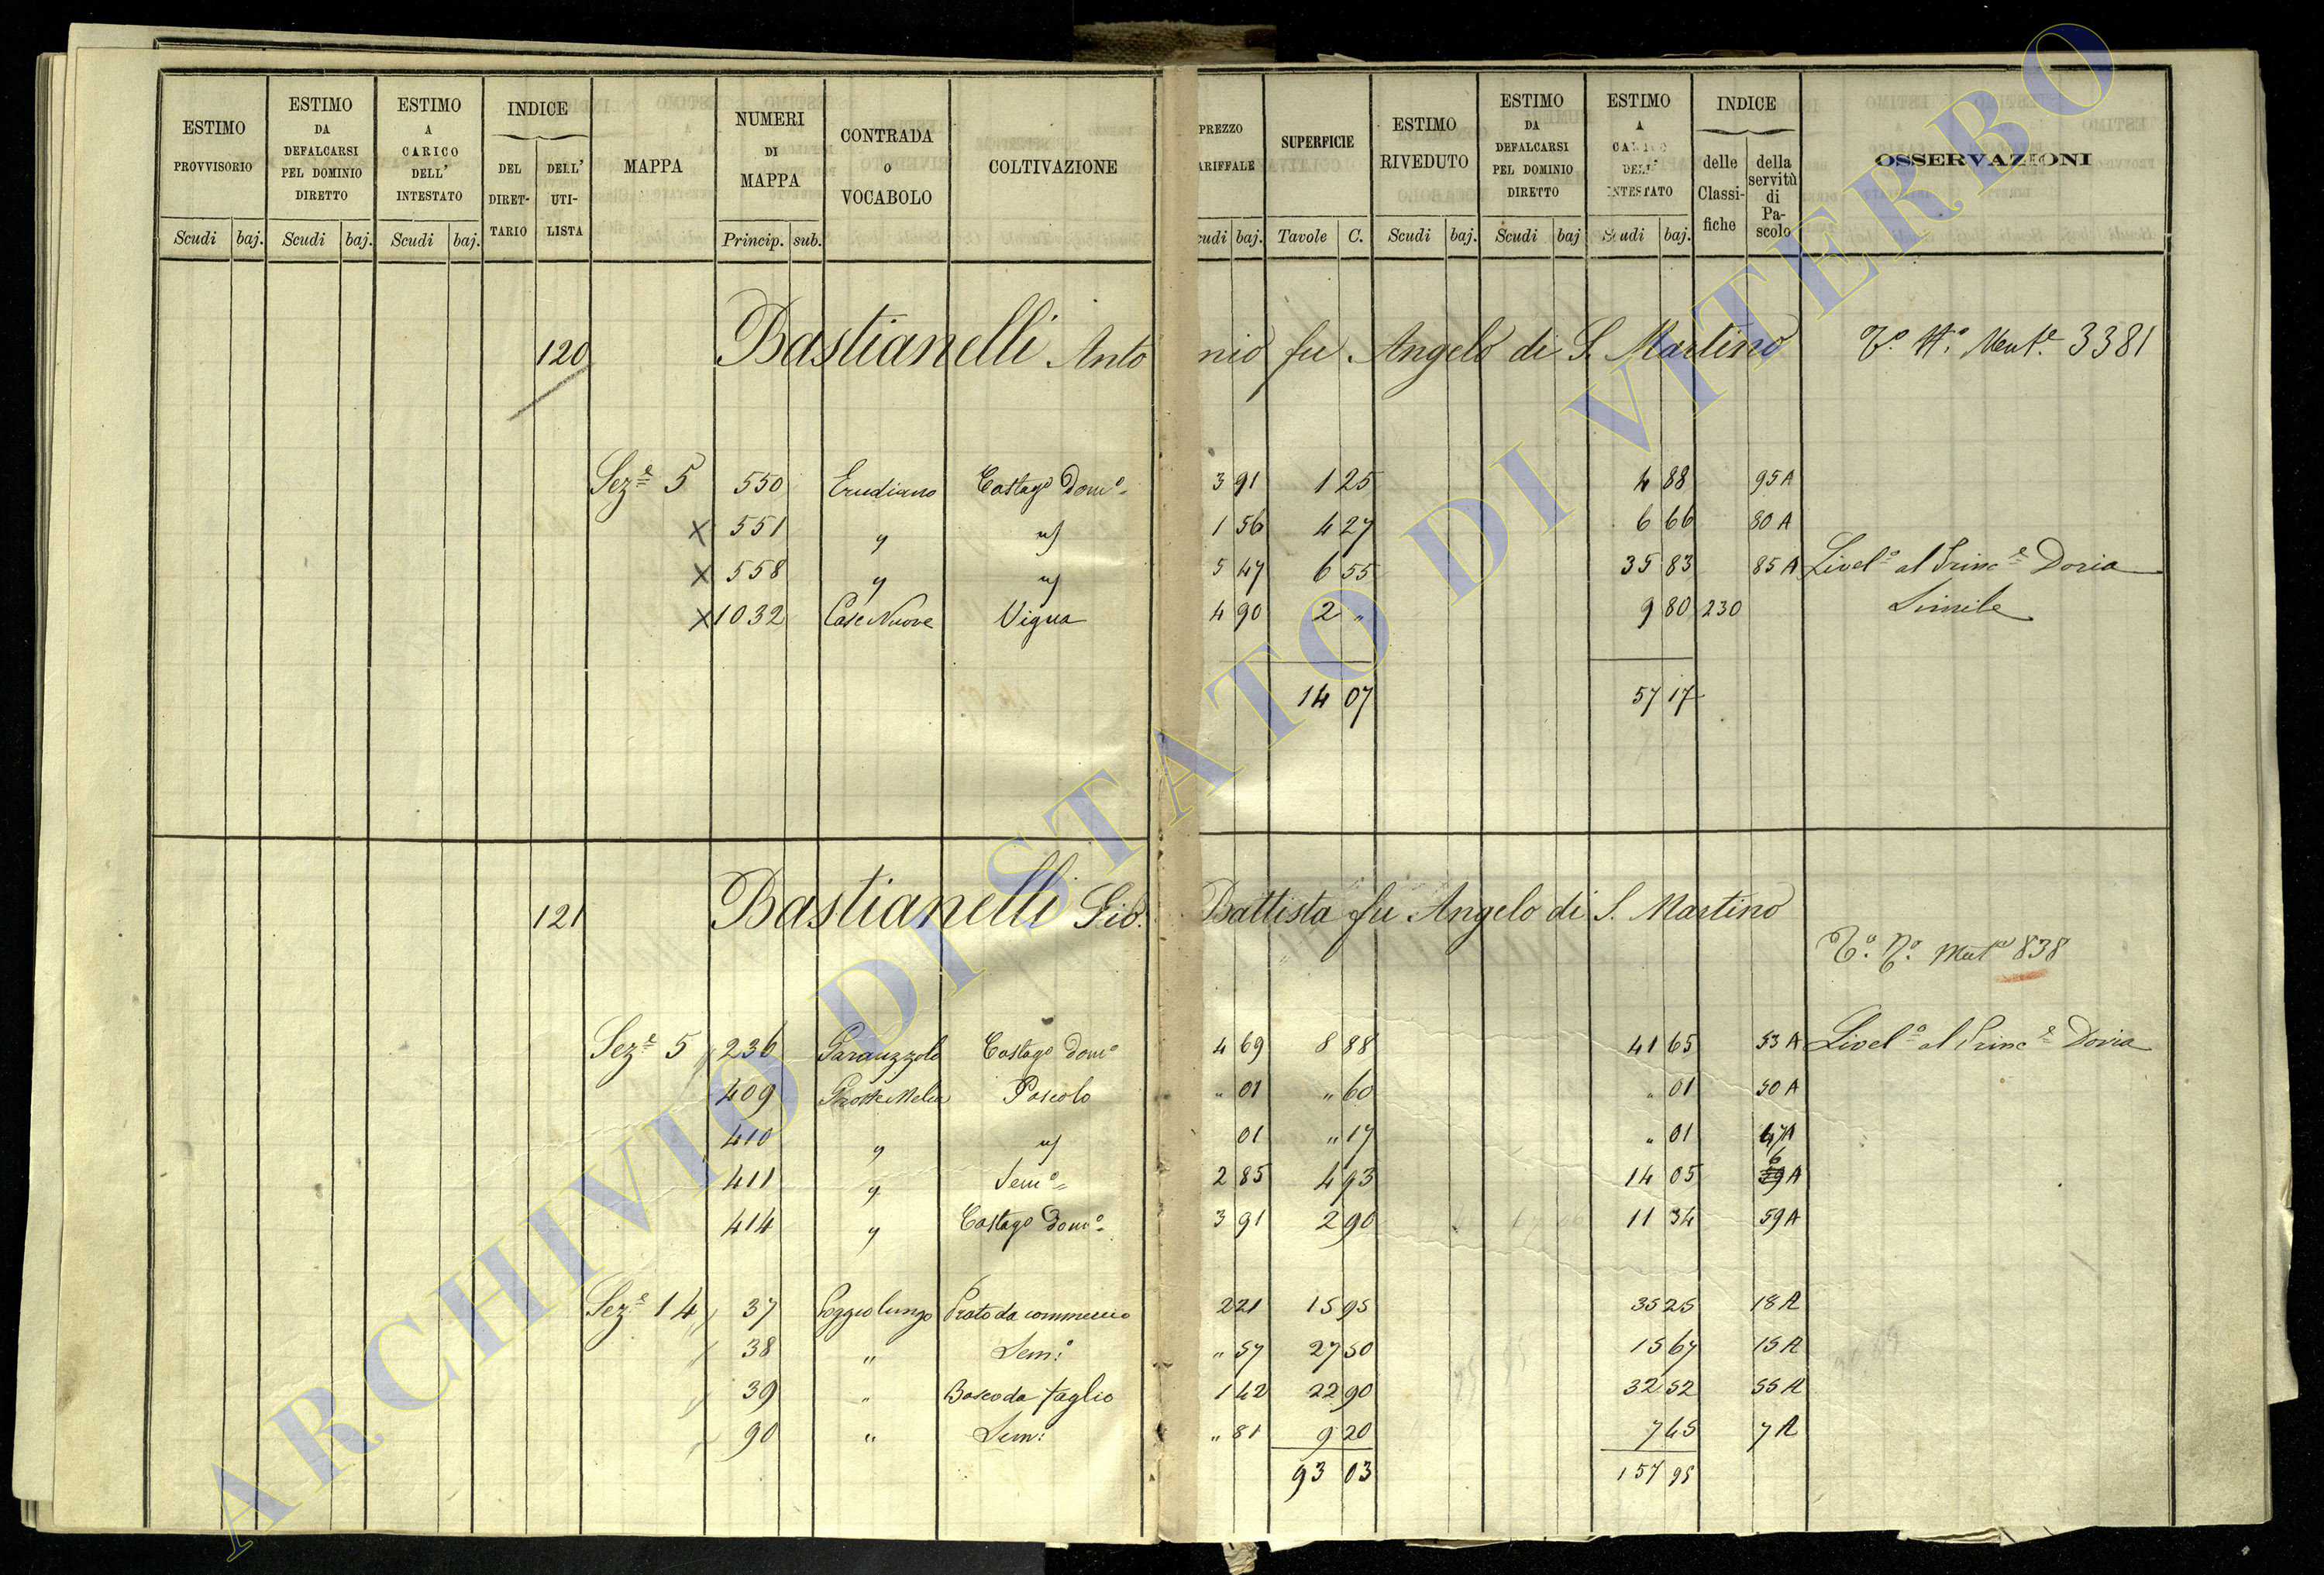 ESTIMO PROVVISORIO Scudi baj.
ESTIMO DA DEFALCARSI PEL DOMINIO DIRETTO Scudi baj.
ESTIMO A CARICO DELL' INTESTATO Scudi baj.
INDICE DEL DIRET- TARIO DELL' UTI- LISTA
MAPPA
NUMERI DI MAPPA Princip. sub.
CONTRADA o VOCABOLO
COLTIVAZIONE
PREZZO ARIFFALE udi baj.
SUPERFICIE Tavole C.
ESTIMO RIVEDUTO Scudi baj.
ESTIMO DA DEFALCARSI PEL DOMINIO DIRETTO Scudi baj
ESTIMO A DELL' INTESTATO Scudi baj.
INDICE delle Classi- fiche della servitù di Pa- scolo
OSSERVAZIONI
120 Bastianelli Antonio fu Angelo di S. Martino 3381
Sez.e 5 550 Castag.o Dom.o 3 91 1 25 4 88 95 A
X 551 " " 1 56 4 27 6 66 80 A
X 558 " " 5 47 6 55 35 83 85 A Livel.o al Princ.e Doria
X 1032 Case Nuove Vigna 4 90 2 " 9 80 230 Simile
14 07 57 17
121 Bastianelli Gio. Battista fu Angelo di S. Martino
838
Sez.e 5 236 Castag.o Dom.o 4 69 8 88 41 65 53 A Livel.o al Princ.e Doria
409 Pascolo " 01 " 60 " 01 50 A
410 " " 01 " 17 " 01 47 A
411 " Sem.o 2 85 4 93 14 05 6 A
414 " Castag.o Dom.o 3 91 2 90 11 34 59 A
Sez.e 14 37 Poggio lungo Prato da commercio 2 21 15 95 35 25 18 A
38 " Sem.o " 57 27 50 15 67 15 A
39 " Bosco da taglio 1 42 22 90 32 52 55 A
90 " Sem: " 81 9 20 7 45 7 A
93 03 157 95
ARCHIVIO DI STATO DI VITERBO